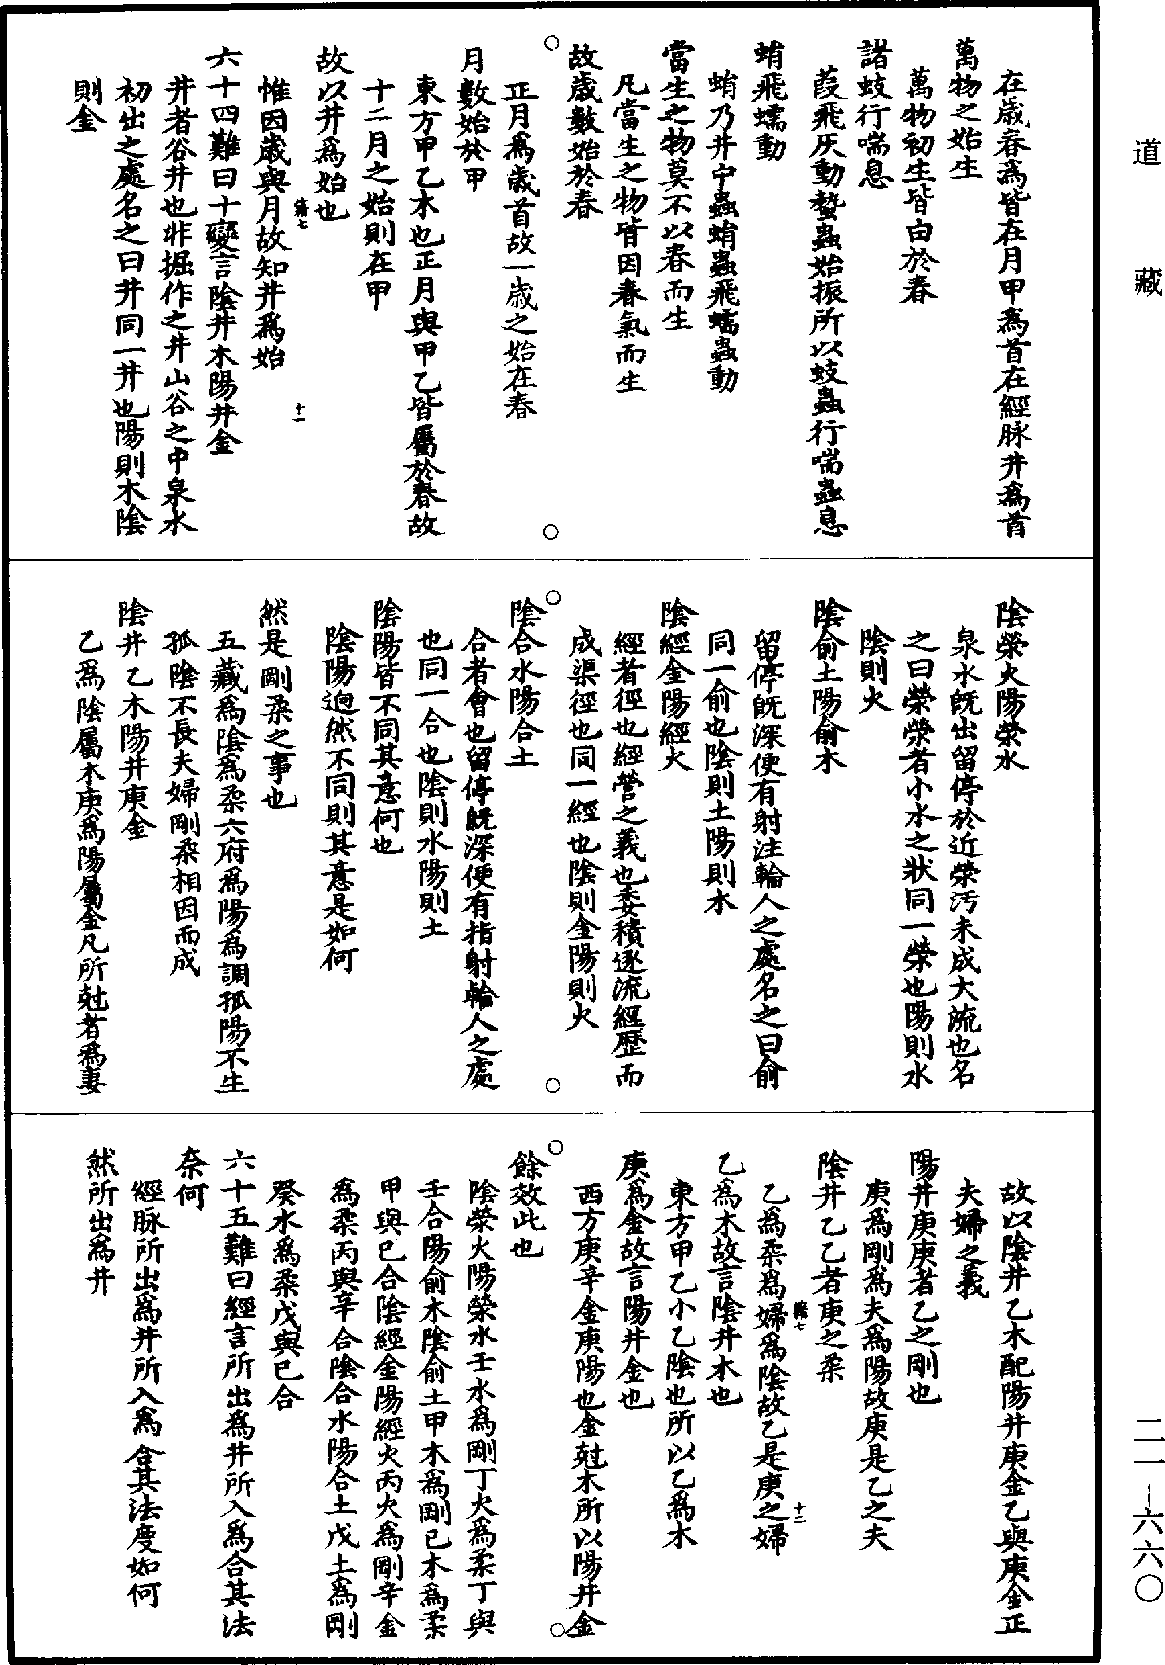 道藏
二一―六六〇
在歲春爲皆在月甲爲首在經脉井爲首
萬物之始生
萬物初生皆由於春
諸蚑行喘息
葭飛灰動蟄蟲始振所以蚑蟲行喘蟲息
蜎飛蠕動
蜎乃井中蟲蜎蟲飛蠕蟲動
當生之物莫不以春而生
凡當生之物皆因春氣而生
故歲數始於春
正月爲歲首故一歲之始在春
月數始於甲
東方甲乙木也正月與甲乙皆屬於春故
十二月之始則在甲
故以井爲始也
惟因歲與月故知井爲始
六十四難曰十變言陰井木陽井金
井者谷井也非掘作之井山谷之中泉水
初出之處名之曰井同一井也陽則木陰
則金
陰滎火陽滎水
泉水旣出留停於近滎汚未成大流也名
之曰滎滎者小水之狀同一滎也陽則水
陰則火
陰俞土陽俞木
留停旣深便有射注輪人之處名之曰俞
同一俞也陰則土陽則木
陰經金陽經火
經者徑也經營之義也委積逐流經歷而
成渠徑也同一經也陰則金陽則火
陰合水陽合土
合者會也留停旣深便有指射輪人之處
也同一合也陰則水陽則土
陰陽皆不同其意何也
陰陽逈然不同則其意是如何
然是剛柔之事也
五藏爲陰爲柔六府爲陽爲調孤陽不生
孤陰不長夫婦剛柔相因而成
陰井乙木陽井庚金
乙爲陰屬木庚爲陽屬金凡所尅者爲妻
故以陰井乙木配陽井庚金乙與庚金正
夫婦之義
陽井庚庚者乙之剛也
庚爲剛爲夫爲陽故庚是乙之夫
陰井乙乙者庚之柔
乙爲柔爲婦爲陰故乙是庚之婦
乙爲木故言陰井木也
東方甲乙小乙陰也所以乙爲木
庚爲金故言陽井金也
西方庚辛金庚陽也金尅木所以陽井金
餘效此也
陰滎火陽滎水壬水爲剛丁火爲柔丁與
壬合陽俞木陰俞土甲木爲剛己木爲柔
甲與己合陰經金陽經火丙火爲剛辛金
爲柔丙與辛合陰合水陽合土戊土爲剛
癸水爲柔戊與己合
六十五難曰經言所出爲井所入爲合其法
奈何
經脉所出爲井所入爲合其法度如何
然所出爲井